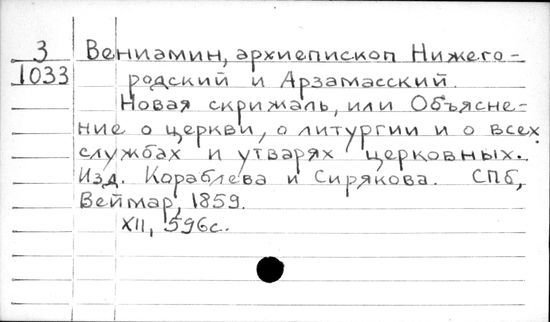 З Вениамин, архиепископ Нижего-
1033 родский и Арзамасский.
Новая скрижаль, или Объясне-
ние о церкви, о литургии и о всех
службах и утварях церковных.
Изд. Кораблева и Сирякова. СПб,
Веймар, 1859.
XII, 596с.